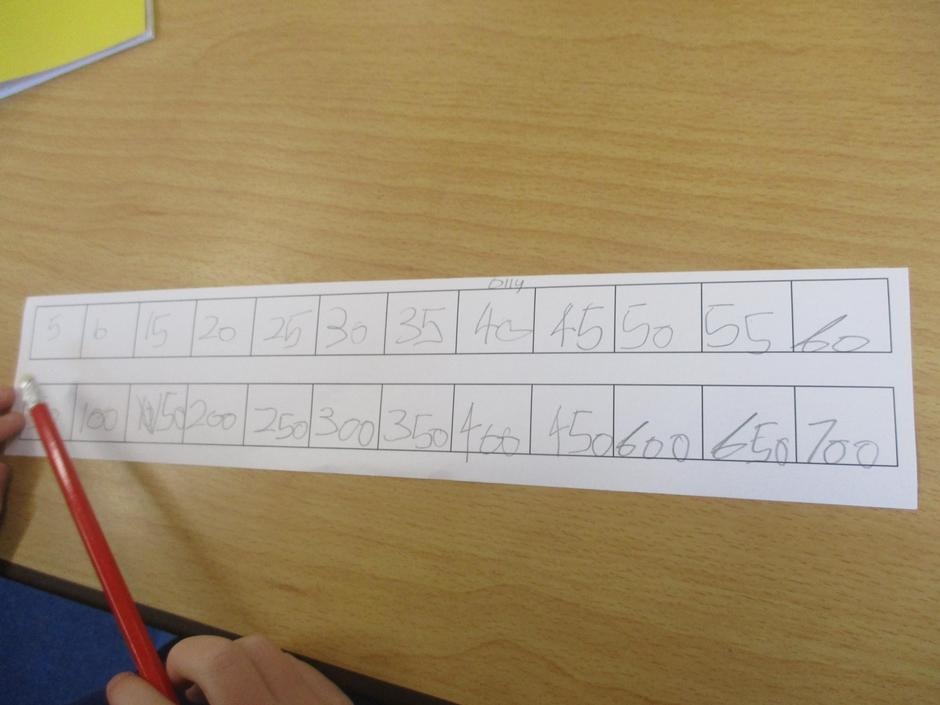 Olly
5 10 15 20 25 30 35 40 45 50 55 60
100 150 200 250 300 350 400 450 600 650 700